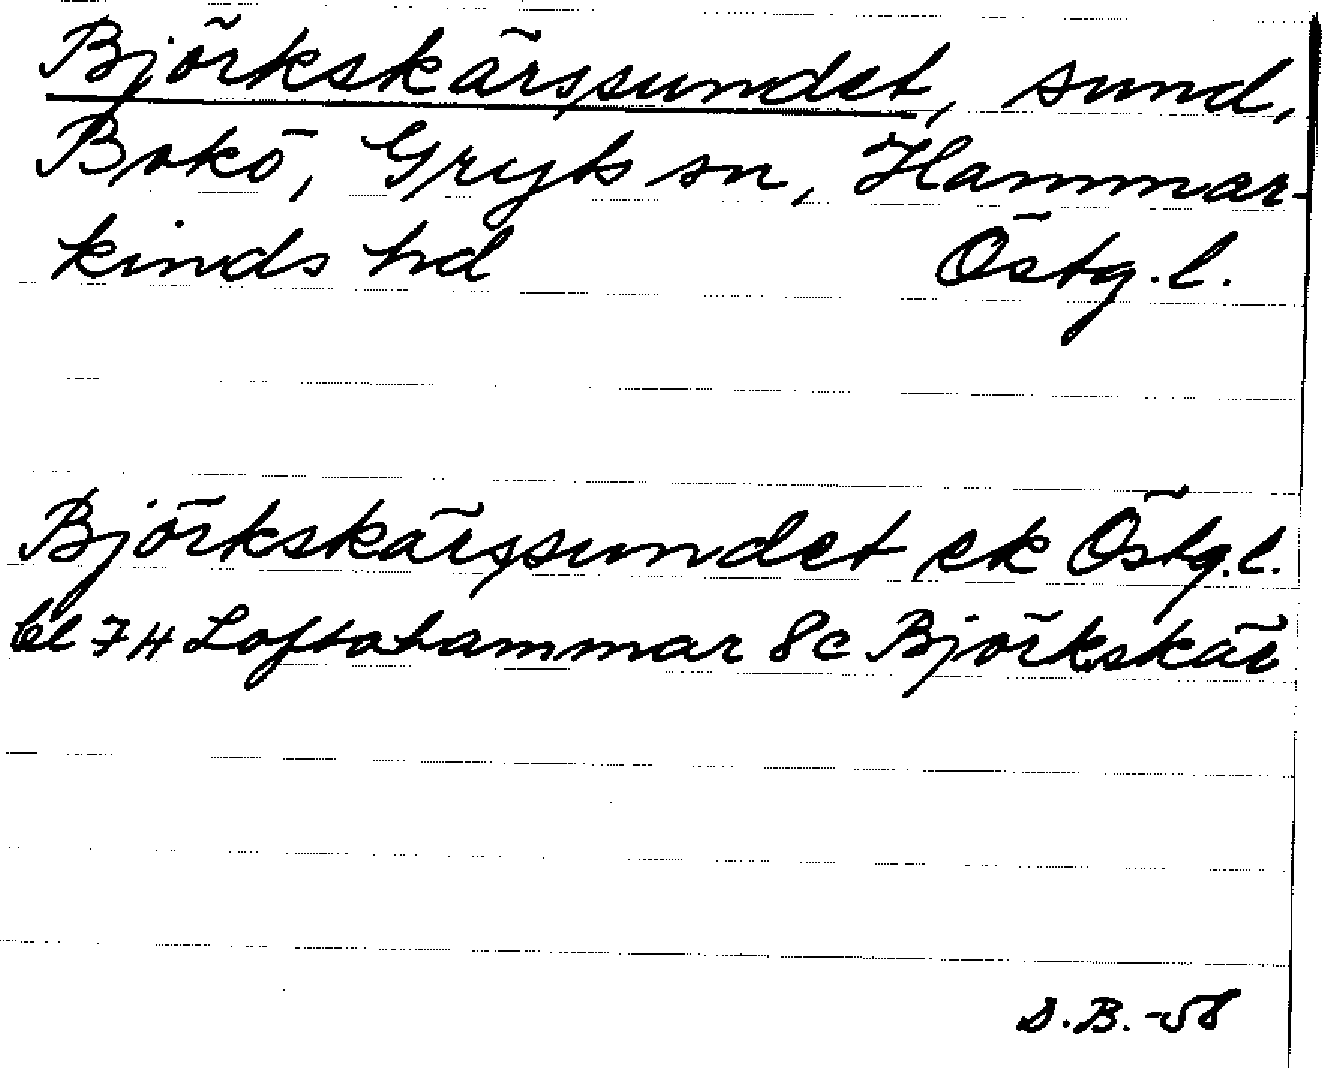 Björkskärssundet, sund,
Bokö, Gryts sn, Hammar-
kinds hd Östg. l.
Björkskärssundet ek Östg. l.
bl 7H Loftahammar 8c Björkskär
S.B. -58